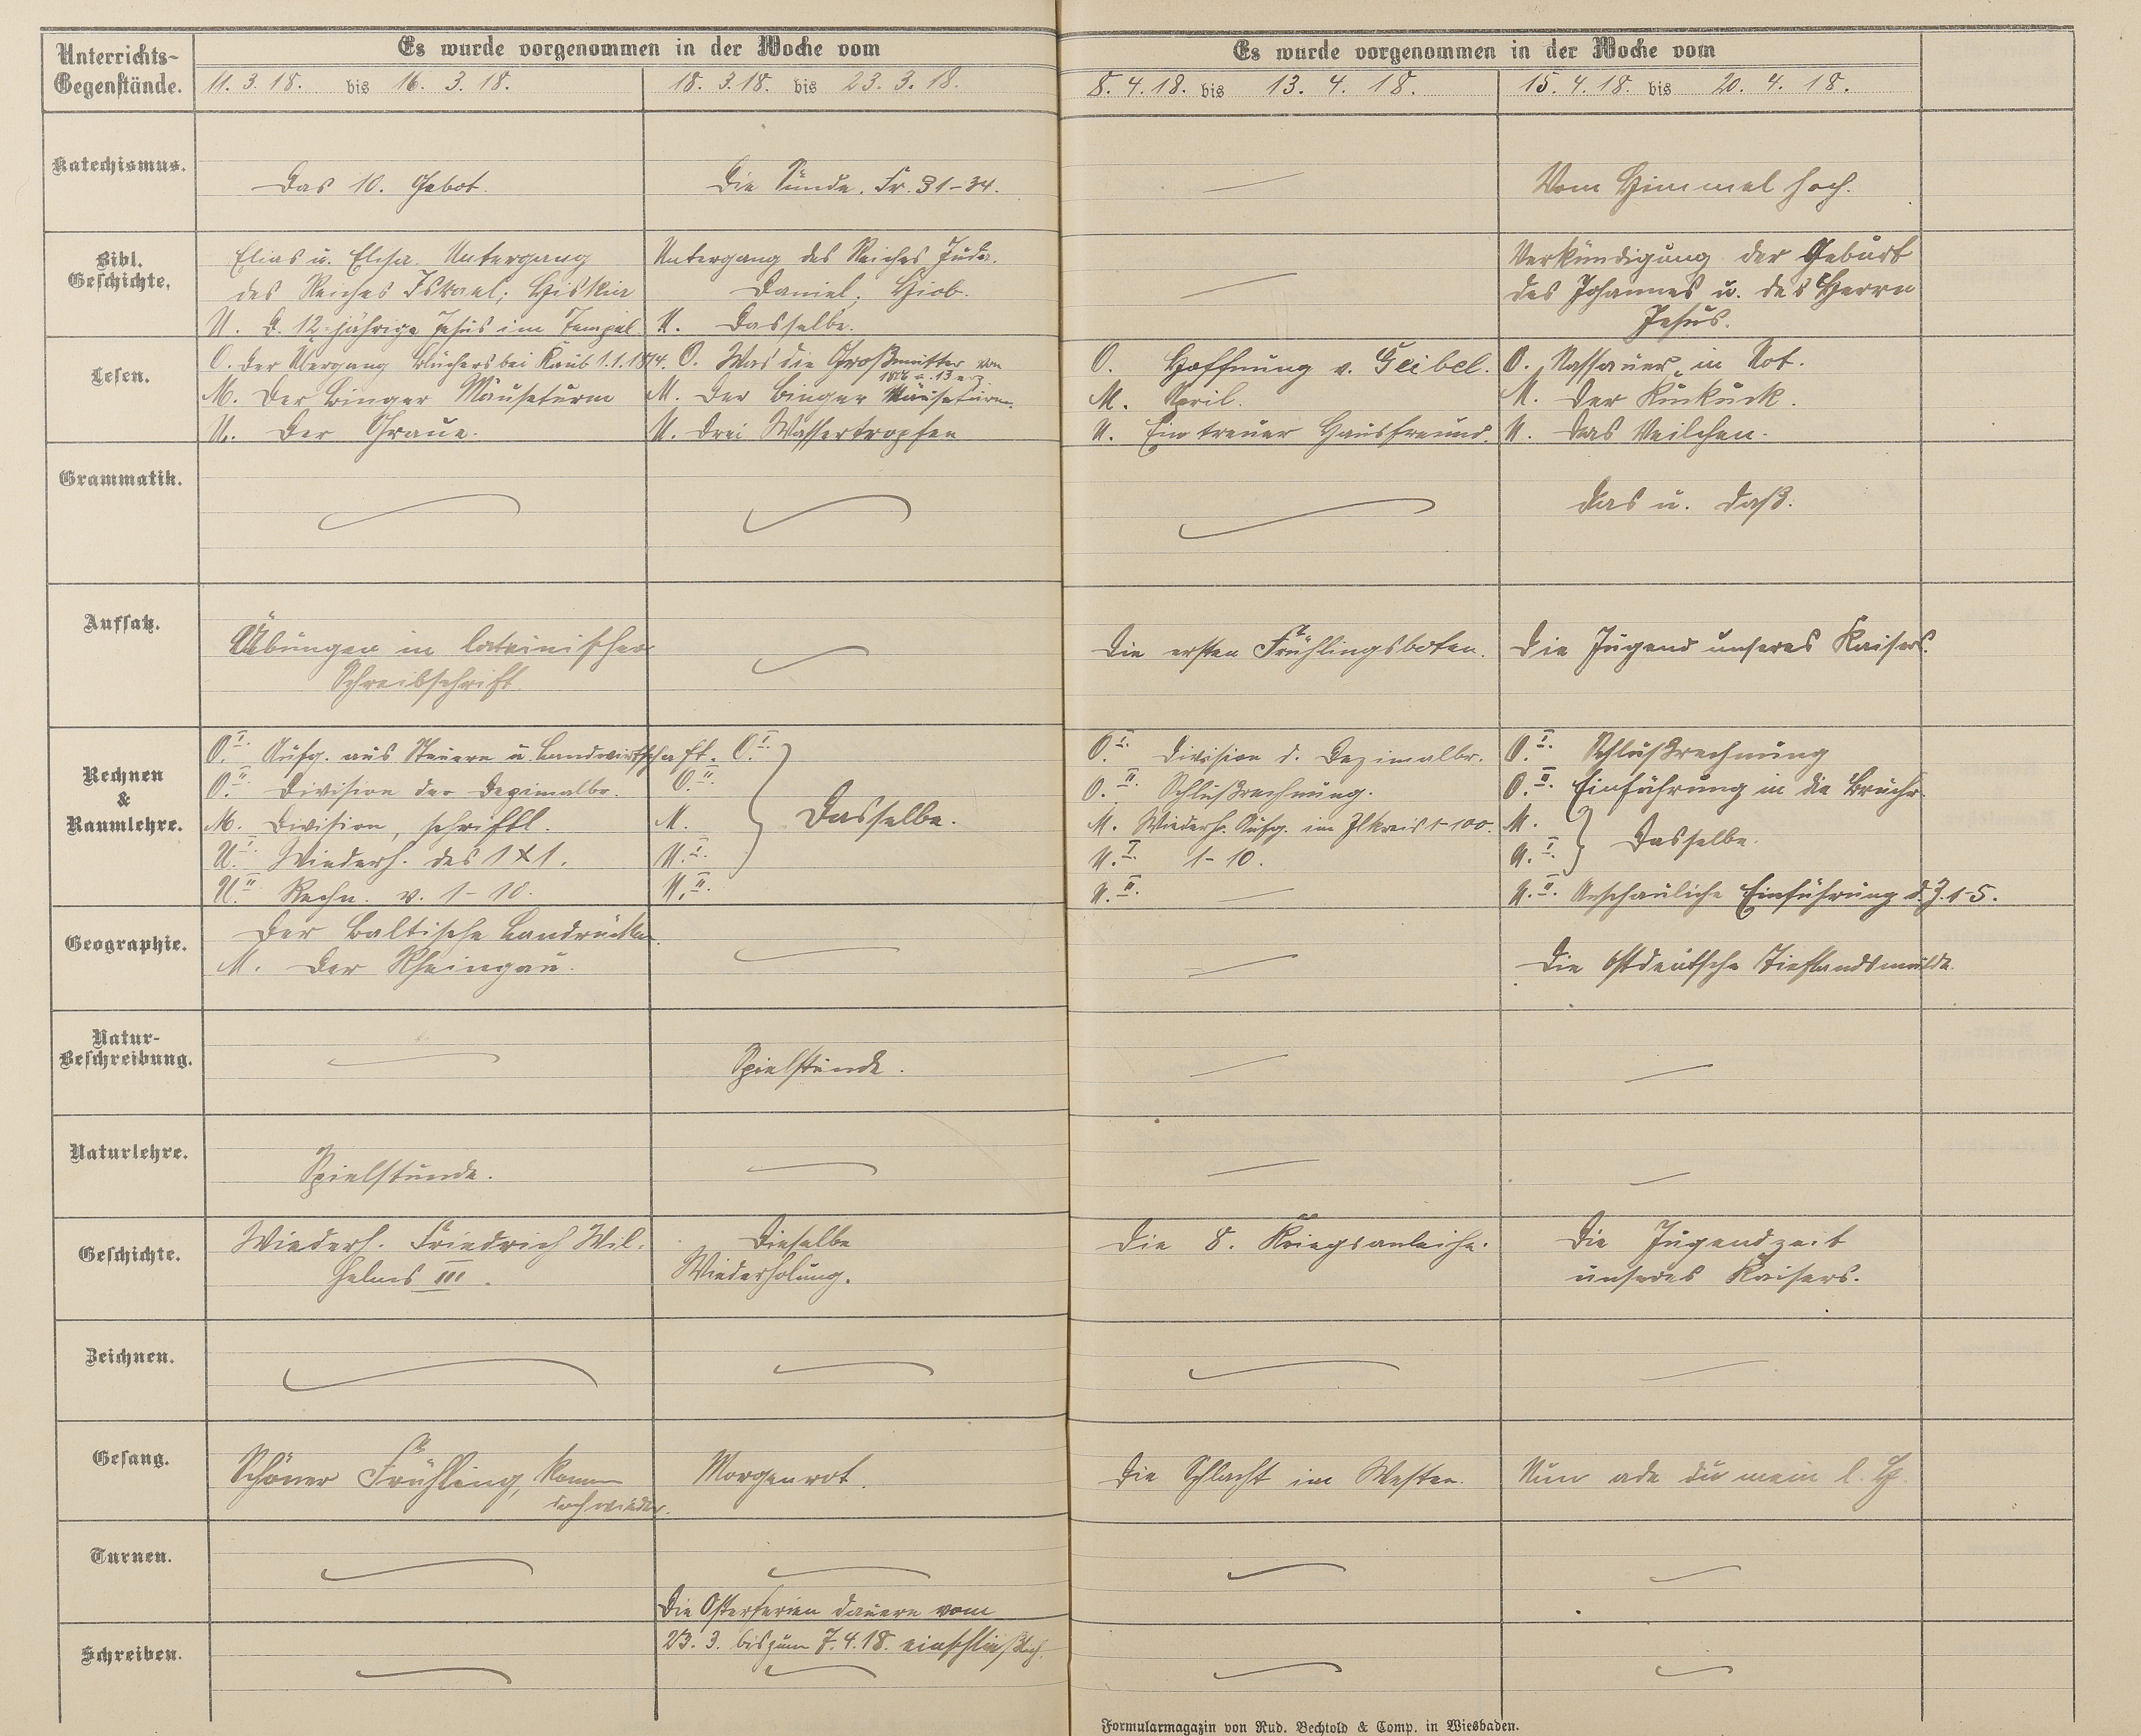 Unterrichts-
Gegenstände.
Es wurde vorgenommen in der Woche vom
11. 3. 18. bis 16. 3. 18.
18. 3. 18. bis 23. 3. 18.
Es wurde vorgenommen in der Woche vom
8. 4. 18. bis 13. 4. 18.
15. 4. 18. bis 20. 4. 18.
Katechismus.
Das 10. Gebot.
Die Sünde. Fr. 31-34.
—
Vom Himmel hoch.
Bibl.
Geschichte.
Elias u. Elisa. Untergang
des Reiches Israel; Hiskia
U. D. 12-jährige Jesus im Tempel.
Untergang des Reiches Juda.
Daniel; Hiob.
U. Dasselbe.
—
Verkündigung der Geburt
des Johannes u. des Herrn
Jesus.
Lesen.
O. Der Übergang Blüchers bei Kaub 1.1.1814.
M. Der Binger Mäuseturm
U. Der Graue.
O. Was die Großmutter von
1806 u. 13 erz.
M. Der Binger Mäuseturm.
U. Drei Wassertropfen
O. Hoffnung v. Geibel.
M. April.
U. Ein treuer Hausfreund.
O. Nassauer in Not.
M. Der Kuckuck.
U. Das Veilchen.
Grammatik.
das u. daß.
Aufsatz.
Übungen in lateinischer
Schreibschrift.
Die ersten Frühlingsboten.
Die Jugend unseres Kaisers.
Rechnen
&
Raumlehre.
O. I. Aufg. aus Steuern u. Landwirtschaft.
O. II. Division der Dezimalbr.
M. Division, schriftl.
U. I. Wiederh. des 1x1.
U. II. Rechn. v. 1-10.
O. I.
O. II.
M. Dasselbe.
U. I.
U. II.
O. I. Division d. Dezimalbr.
O. II. Schlußrechnung.
M. Wiederh. Aufg. im Zlkreis 1-100.
U. I. 1-10.
U. II. —
O. I. Schlußrechnung
O. II. Einführung in die Brüche.
M.
U. I. Dasselbe.
U. II. Anschauliche Einführung d. Z. 1-5.
Geographie.
Der Baltische Landrücken.
M. Der Rheingau.
—
Die ostdeutsche Tieflandsmulde.
Natur-
Beschreibung.
Spielstunde.
Naturlehre.
Spielstunde.
Geschichte.
Wiederh. Friedrich Wil-
helms III.
Dieselbe
Wiederholung.
Die 8. Kriegsanleihe.
Die Jugendzeit
unseres Kaisers.
Zeichnen.
Gesang.
Schöner Frühling, komm
doch wieder.
Morgenrot.
Die Schlacht im Westen.
Nun ade du mein l. H.
Turnen.
Die Osterferien dauern vom
23. 3. bis zum 7. 4. 18. einschließlich.
Schreiben.
Formularmagazin von Rud. Bechtold & Comp. in Wiesbaden.